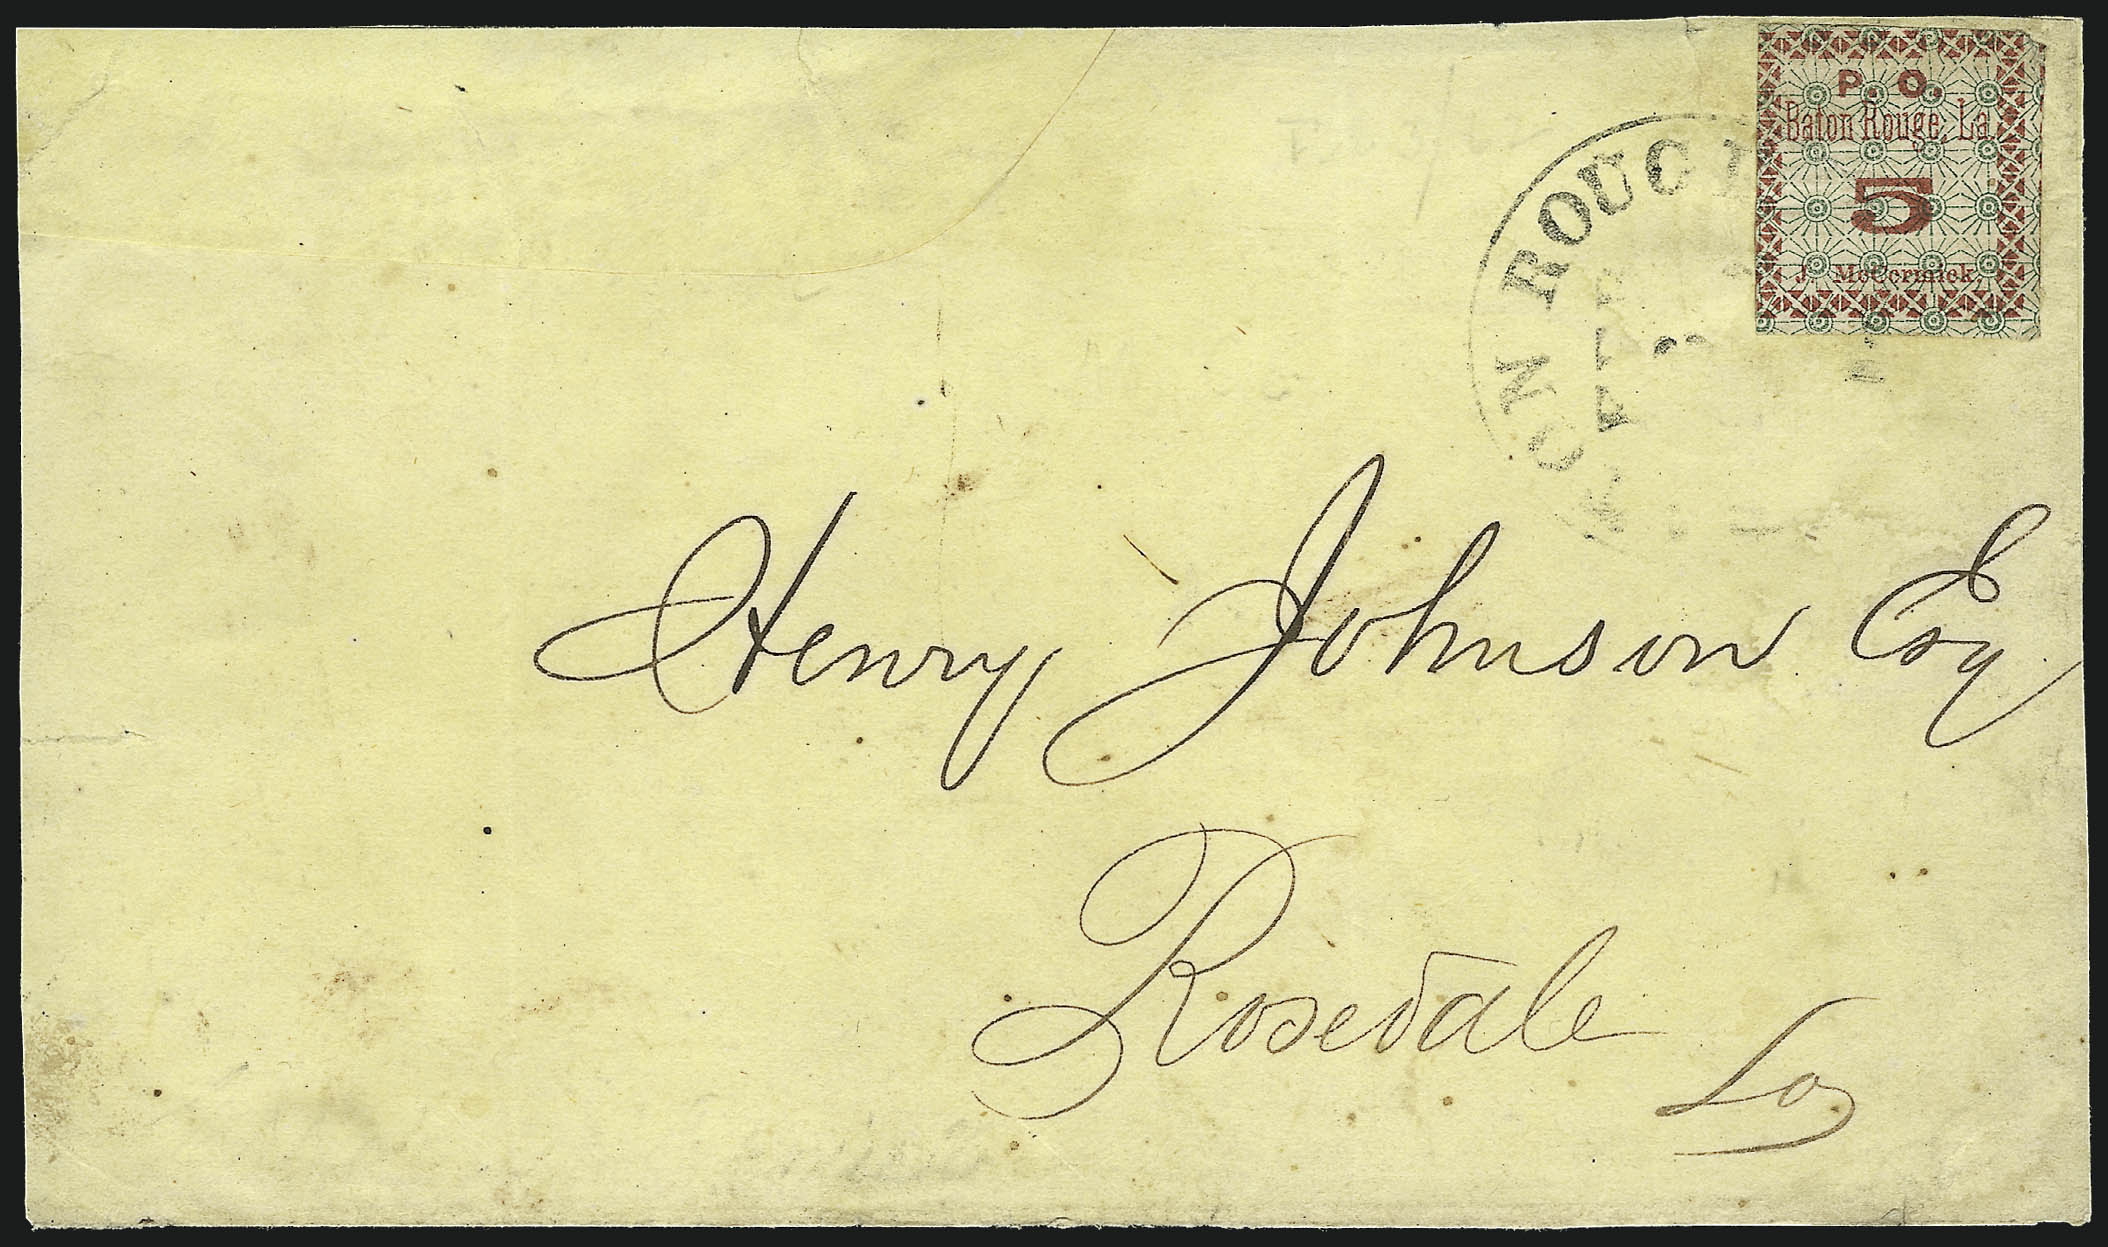 P. O.
Baton Rouge, La.
5
J. McCormick.
ON ROUGE
Henry Johnson Esq
Rosedale
La